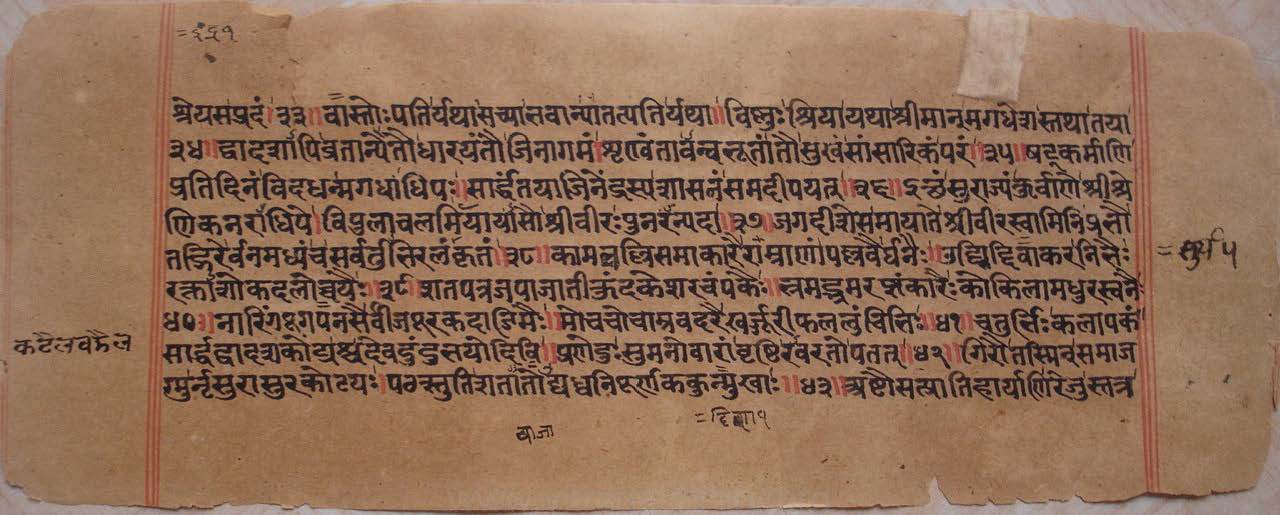 =इंद्र१
श्रेयसप्रदं।३३॥वास्तोःपतिर्यथासच्यासवान्यातत्पतिर्यथा॥विष्णुःश्रियायथाश्रीमान्मगधेशस्तथातया
३४॥द्वादशापिव्रतान्येतौधारयंतौजिनागमं।शृण्वंतावन्वभूतांतौसुखंसांसारिकंपरं॥३५॥षट्कर्माणि
प्रतिदिनंविदधन्मगधाधिपः॥सार्द्धंतयाजिनेंद्रस्यशासनंसमदीपयत्॥३६॥इत्थंसुराज्यंकुर्वाणेश्रीश्रे
णिकनराधिपे।विपुलाचलमियायासौश्रीवीरःपुनरन्यदा॥३७॥जगदीशेसमायातेश्रीवीरस्वामिनिप्रभौ
तद्गिरेर्वनमध्यंचसर्वर्तुभिरलंकृतं॥३८॥कामवल्लभिसमाकारैराम्राणांपल्लवैर्घनैः॥उद्यद्दिवाकरनिभैः
रक्ताशोकदलोच्चयैः॥३९॥शतपत्रजपाजातीकुंदकेशरचंपकैः॥भ्रमद्भ्रमरझंकारैःकोकिलामधुरस्वनैः
४०॥नारिंगपूगपनसैर्बीजपूरकदाडिमैः॥मोचचोचाम्रबदरैखर्जूरीफललुंबिभिः॥४१॥चतुर्भिःकलापकं
सार्द्धद्वादशकोट्यश्चदेवदुंदुभयोदिवि॥प्रणेदुःसुमनोवारांवृष्टिरंबरतोपतत्॥४२॥गिरौतस्मिन्समाज
ग्मुर्नृसुरासुरकोटयः।पठत्स्तुतिशतातोद्यध्वनिपूर्णककुन्मुखाः॥४३॥अष्टौसत्प्रातिहार्याणिरेजुस्तत्र
=सूर्य५
वाजा
=दिशा१